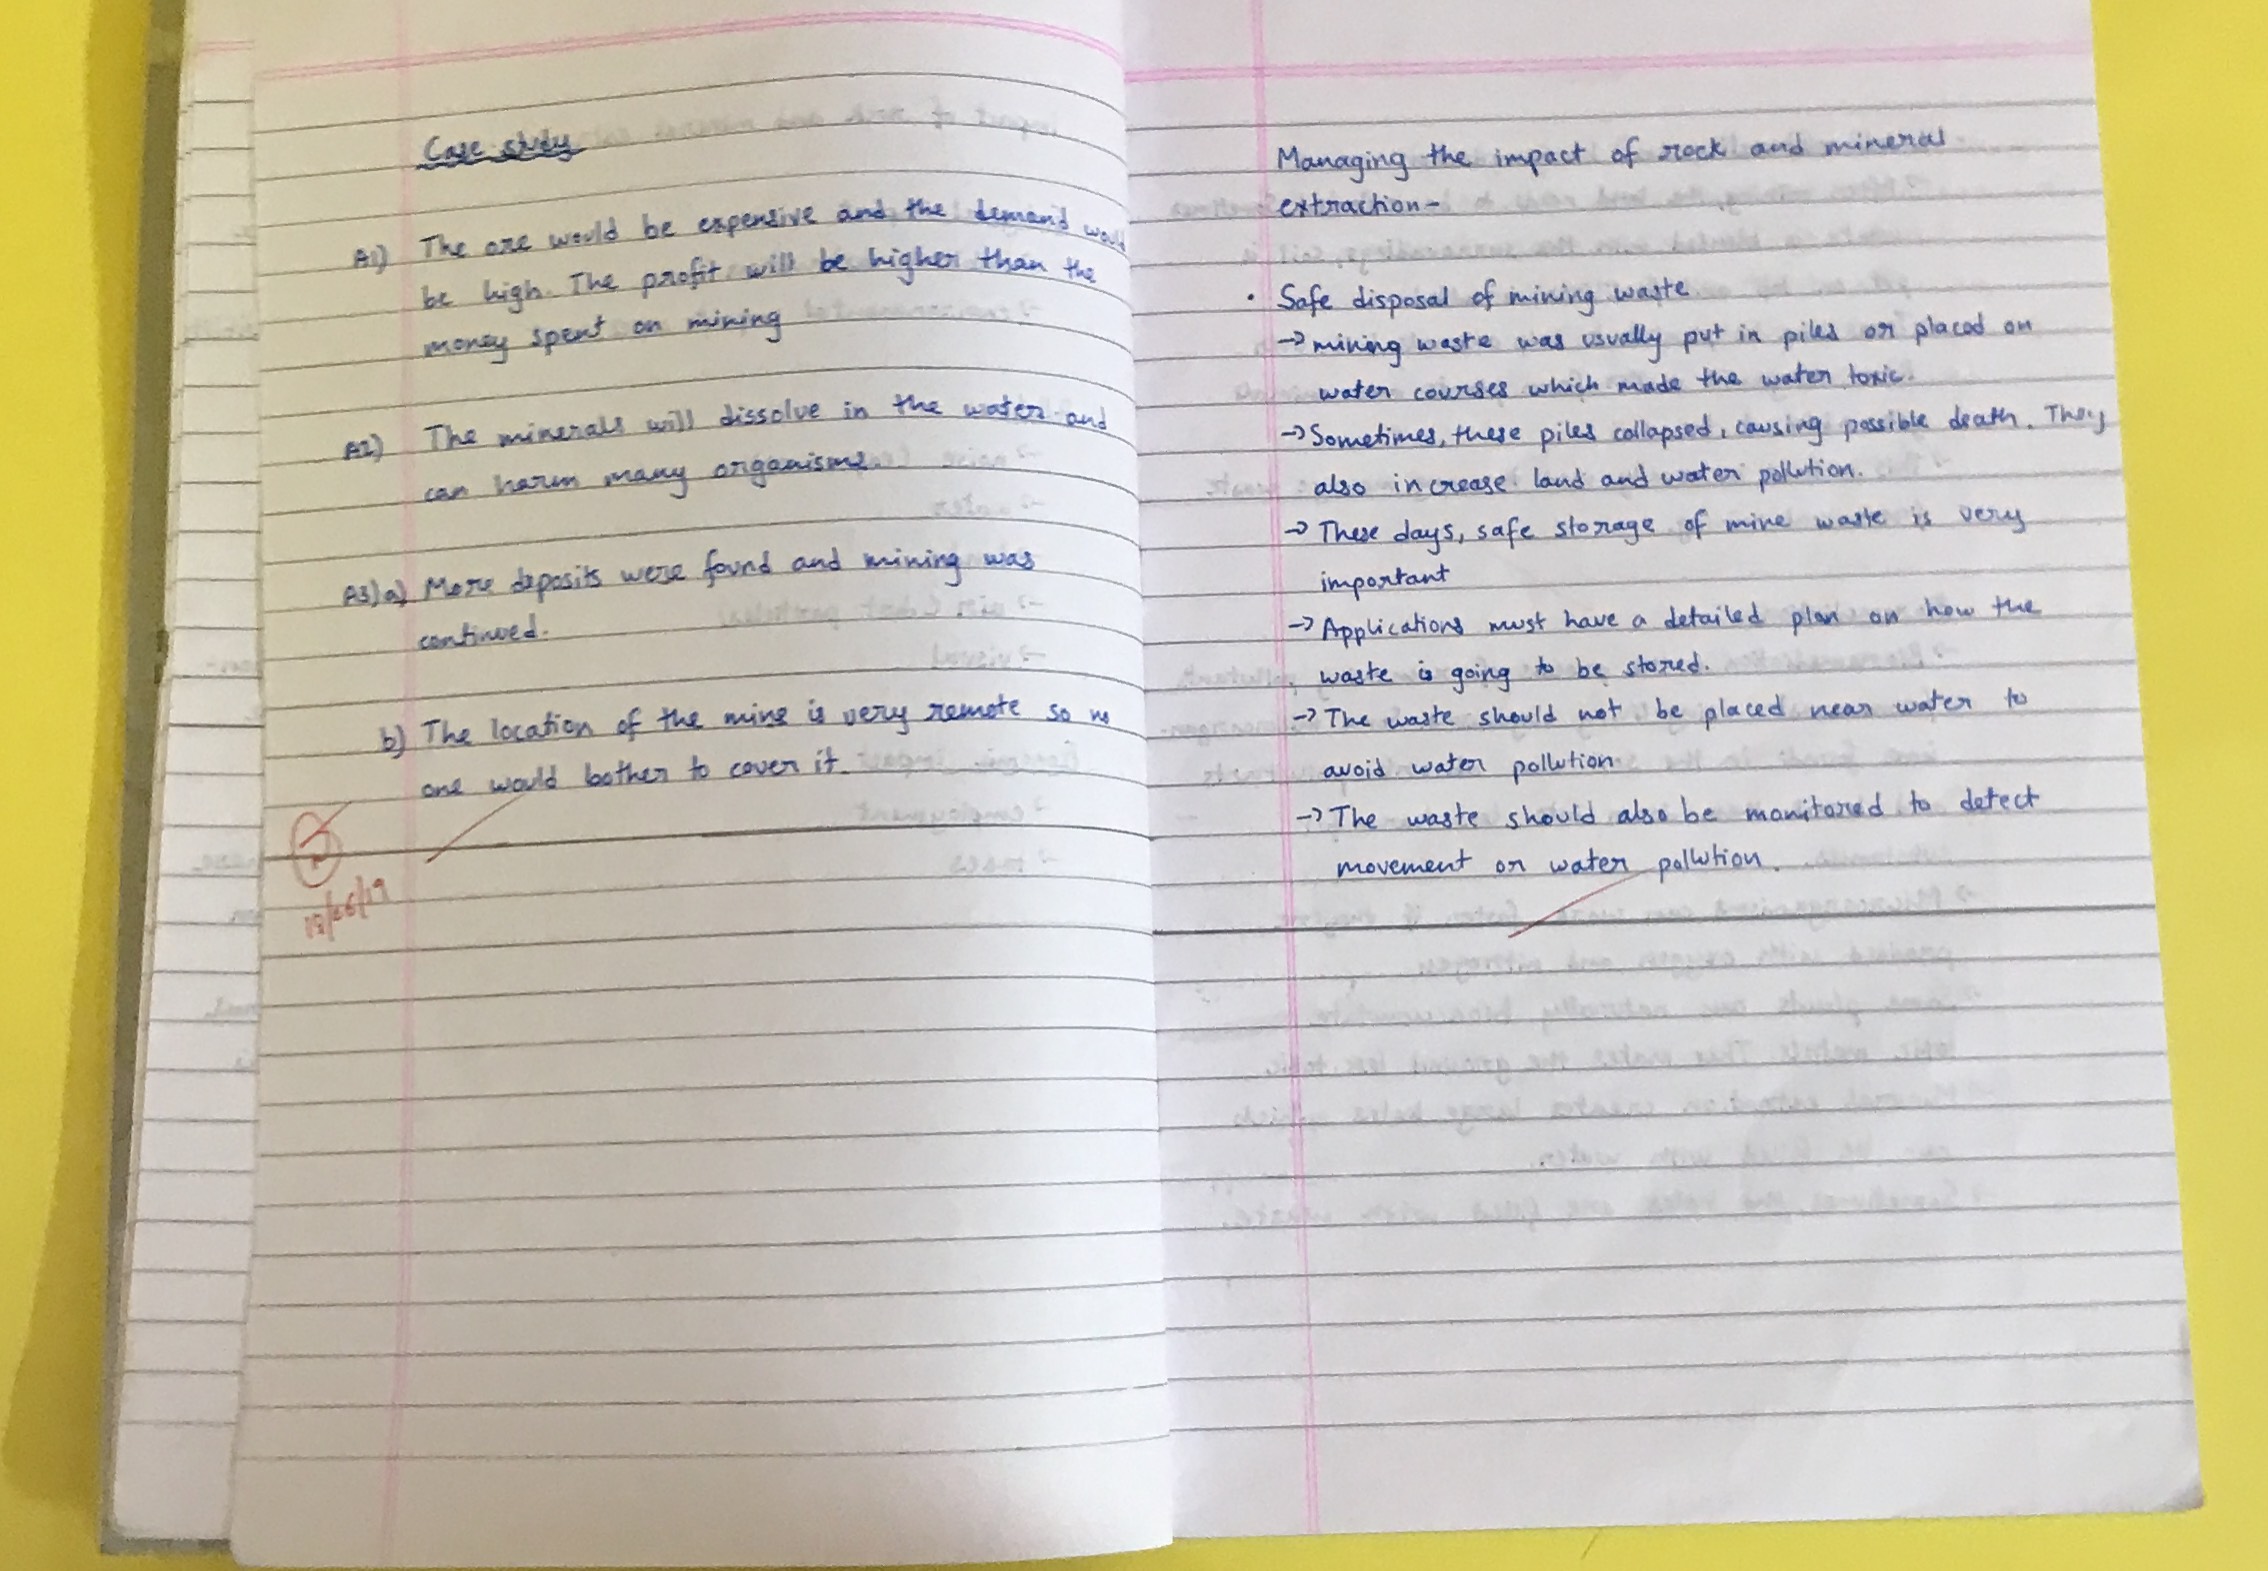 Case study
A1) The ore would be expensive and the demand would
be high. The profit will be higher than the
money spent on mining
A2) The minerals will dissolve in the water and
can harm many organisms.
A3)a) More deposits were found and mining was
continued.
b) The location of the mine is very remote so no
one would bother to cover it.
Managing the impact of rock and mineral
extraction-
• Safe disposal of mining waste
→ mining waste was usually put in piles or placed on
water courses which made the water toxic.
→ Sometimes, these piles collapsed, causing possible death. They
also increase land and water pollution.
→ These days, safe storage of mine waste is very
important
→ Applications must have a detailed plan on how the
waste is going to be stored.
→ The waste should not be placed near water to
avoid water pollution
→ The waste should also be monitored to detect
movement or water pollution.